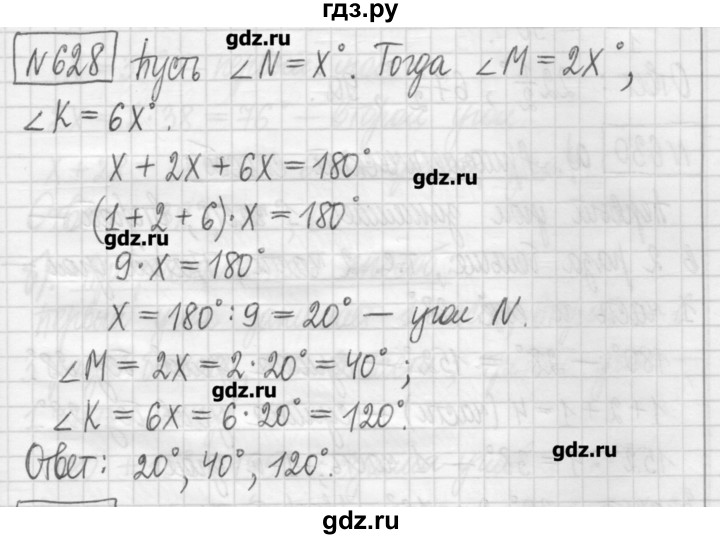 гдз.ру
№628 Пусть ∠N = x°. Тогда ∠M = 2x°,
gdz.ru
∠K = 6x°.
x + 2x + 6x = 180°
gdz.ru
(1 + 2 + 6)·x = 180°
gdz.ru
9·x = 180°
x = 180° : 9 = 20° — угол N.
∠M = 2x = 2·20° = 40°;
gdz.ru
∠K = 6x = 6·20° = 120°.
gdz.ru
Ответ: 20°, 40°, 120°.
gdz.ru